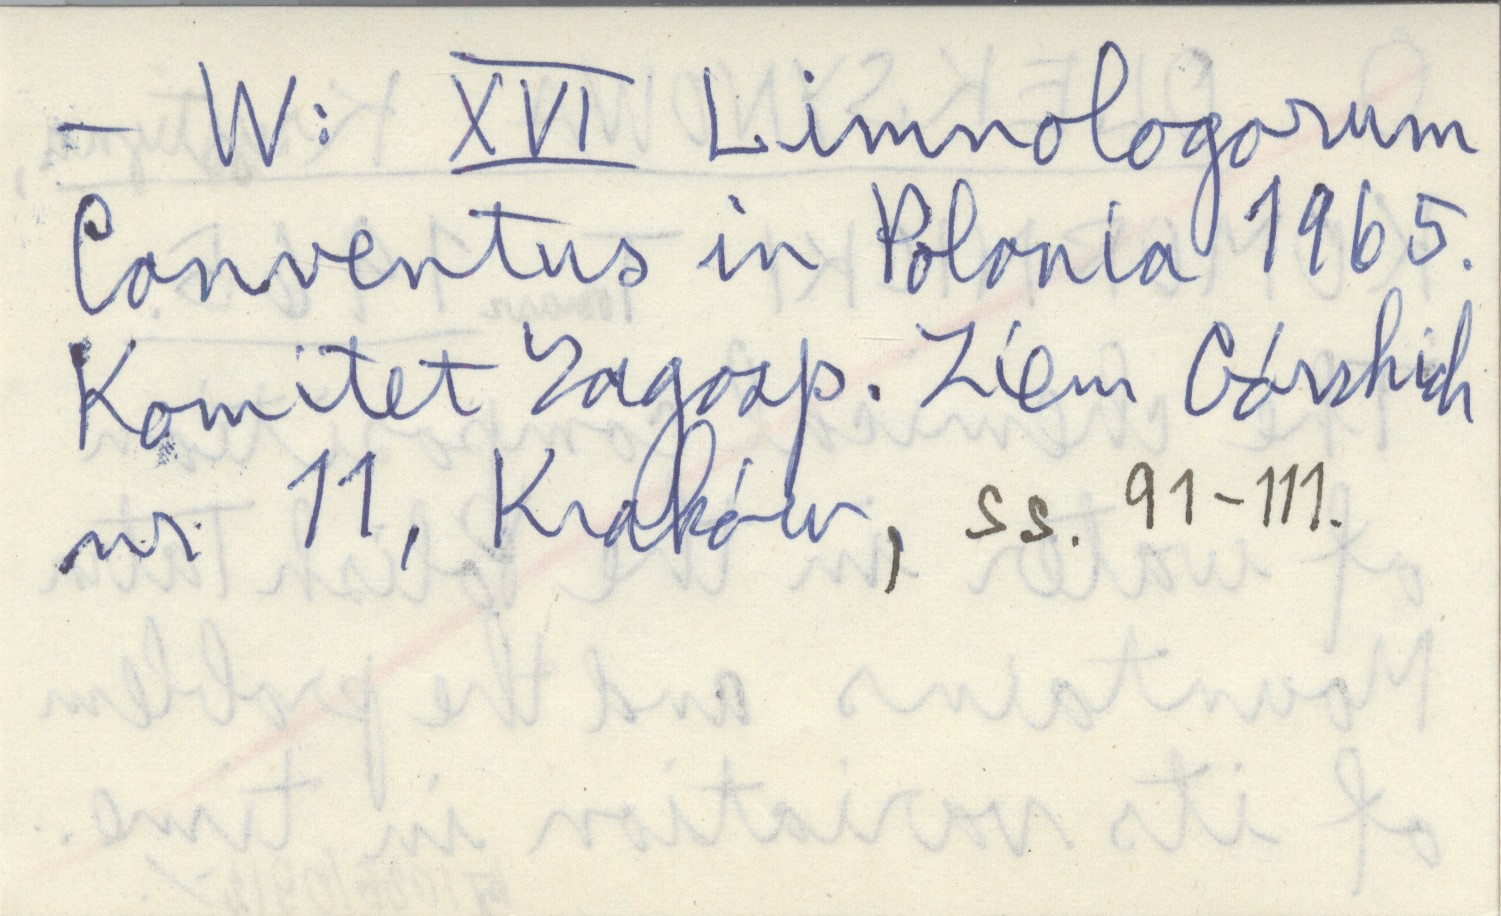 - W: XVI Limnologorum
Conventus in Polonia 1965.
Komitet Zagosp. Ziem Górskich
nr 11, Kraków, ss. 91-111.